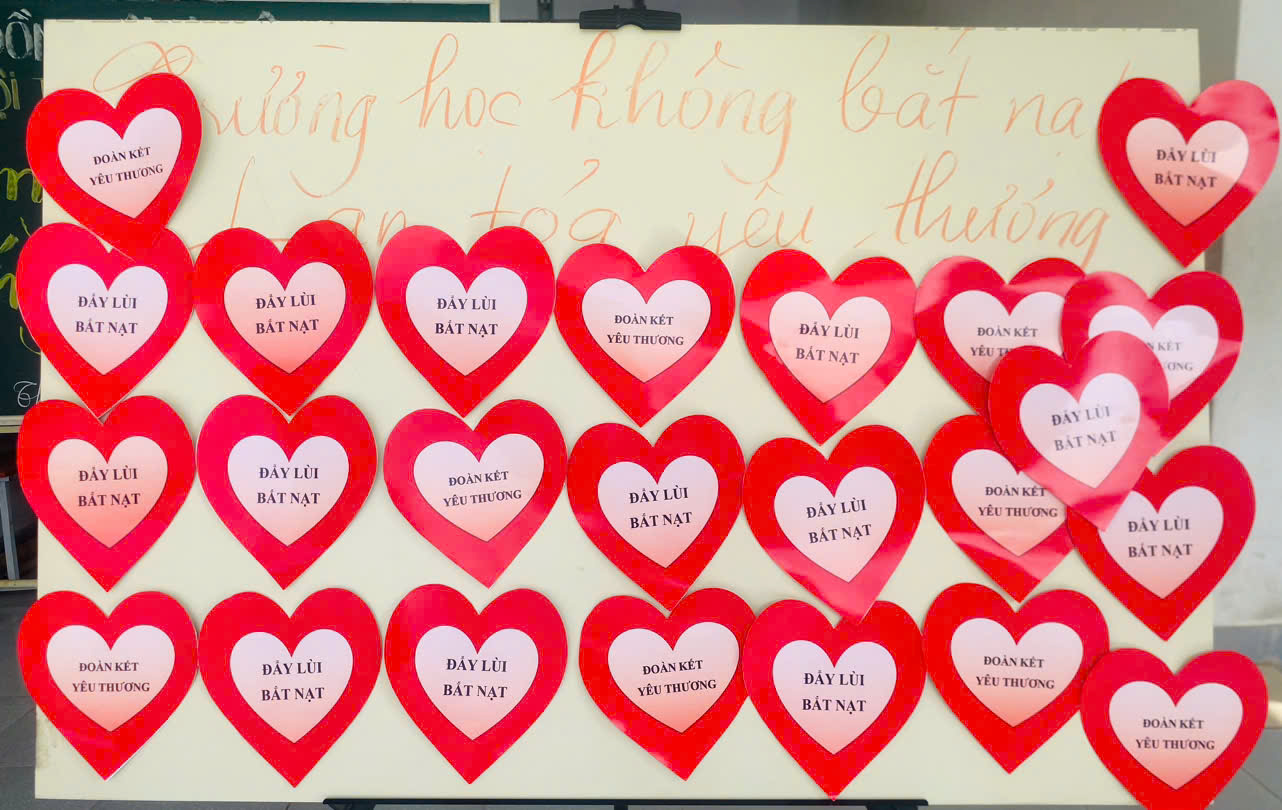 Trường học không bắt nạ
Lan tỏa yêu thương
ĐOÀN KẾT
YÊU THƯƠNG
ĐẨY LÙI
BẮT NẠT
ĐẨY LÙI
BẮT NẠT
ĐẨY LÙI
BẮT NẠT
ĐẨY LÙI
BẮT NẠT
ĐOÀN KẾT
YÊU THƯƠNG
ĐẨY LÙI
BẮT NẠT
ĐOÀN KẾT
YÊU
ĐẨY LÙI
BẮT NẠT
ĐẨY LÙI
BẮT NẠT
ĐẨY LÙI
BẮT NẠT
ĐOÀN KẾT
YÊU THƯƠNG
ĐẨY LÙI
BẮT NẠT
ĐẨY LÙI
BẮT NẠT
ĐOÀN KẾT
YÊU THƯƠNG
ĐẨY LÙI
BẮT NẠT
ĐOÀN KẾT
YÊU THƯƠNG
ĐẨY LÙI
BẮT NẠT
ĐẨY LÙI
BẮT NẠT
ĐOÀN KẾT
YÊU THƯƠNG
ĐẨY LÙI
BẮT NẠT
ĐOÀN KẾT
YÊU THƯƠNG
ĐOÀN KẾT
YÊU THƯƠNG